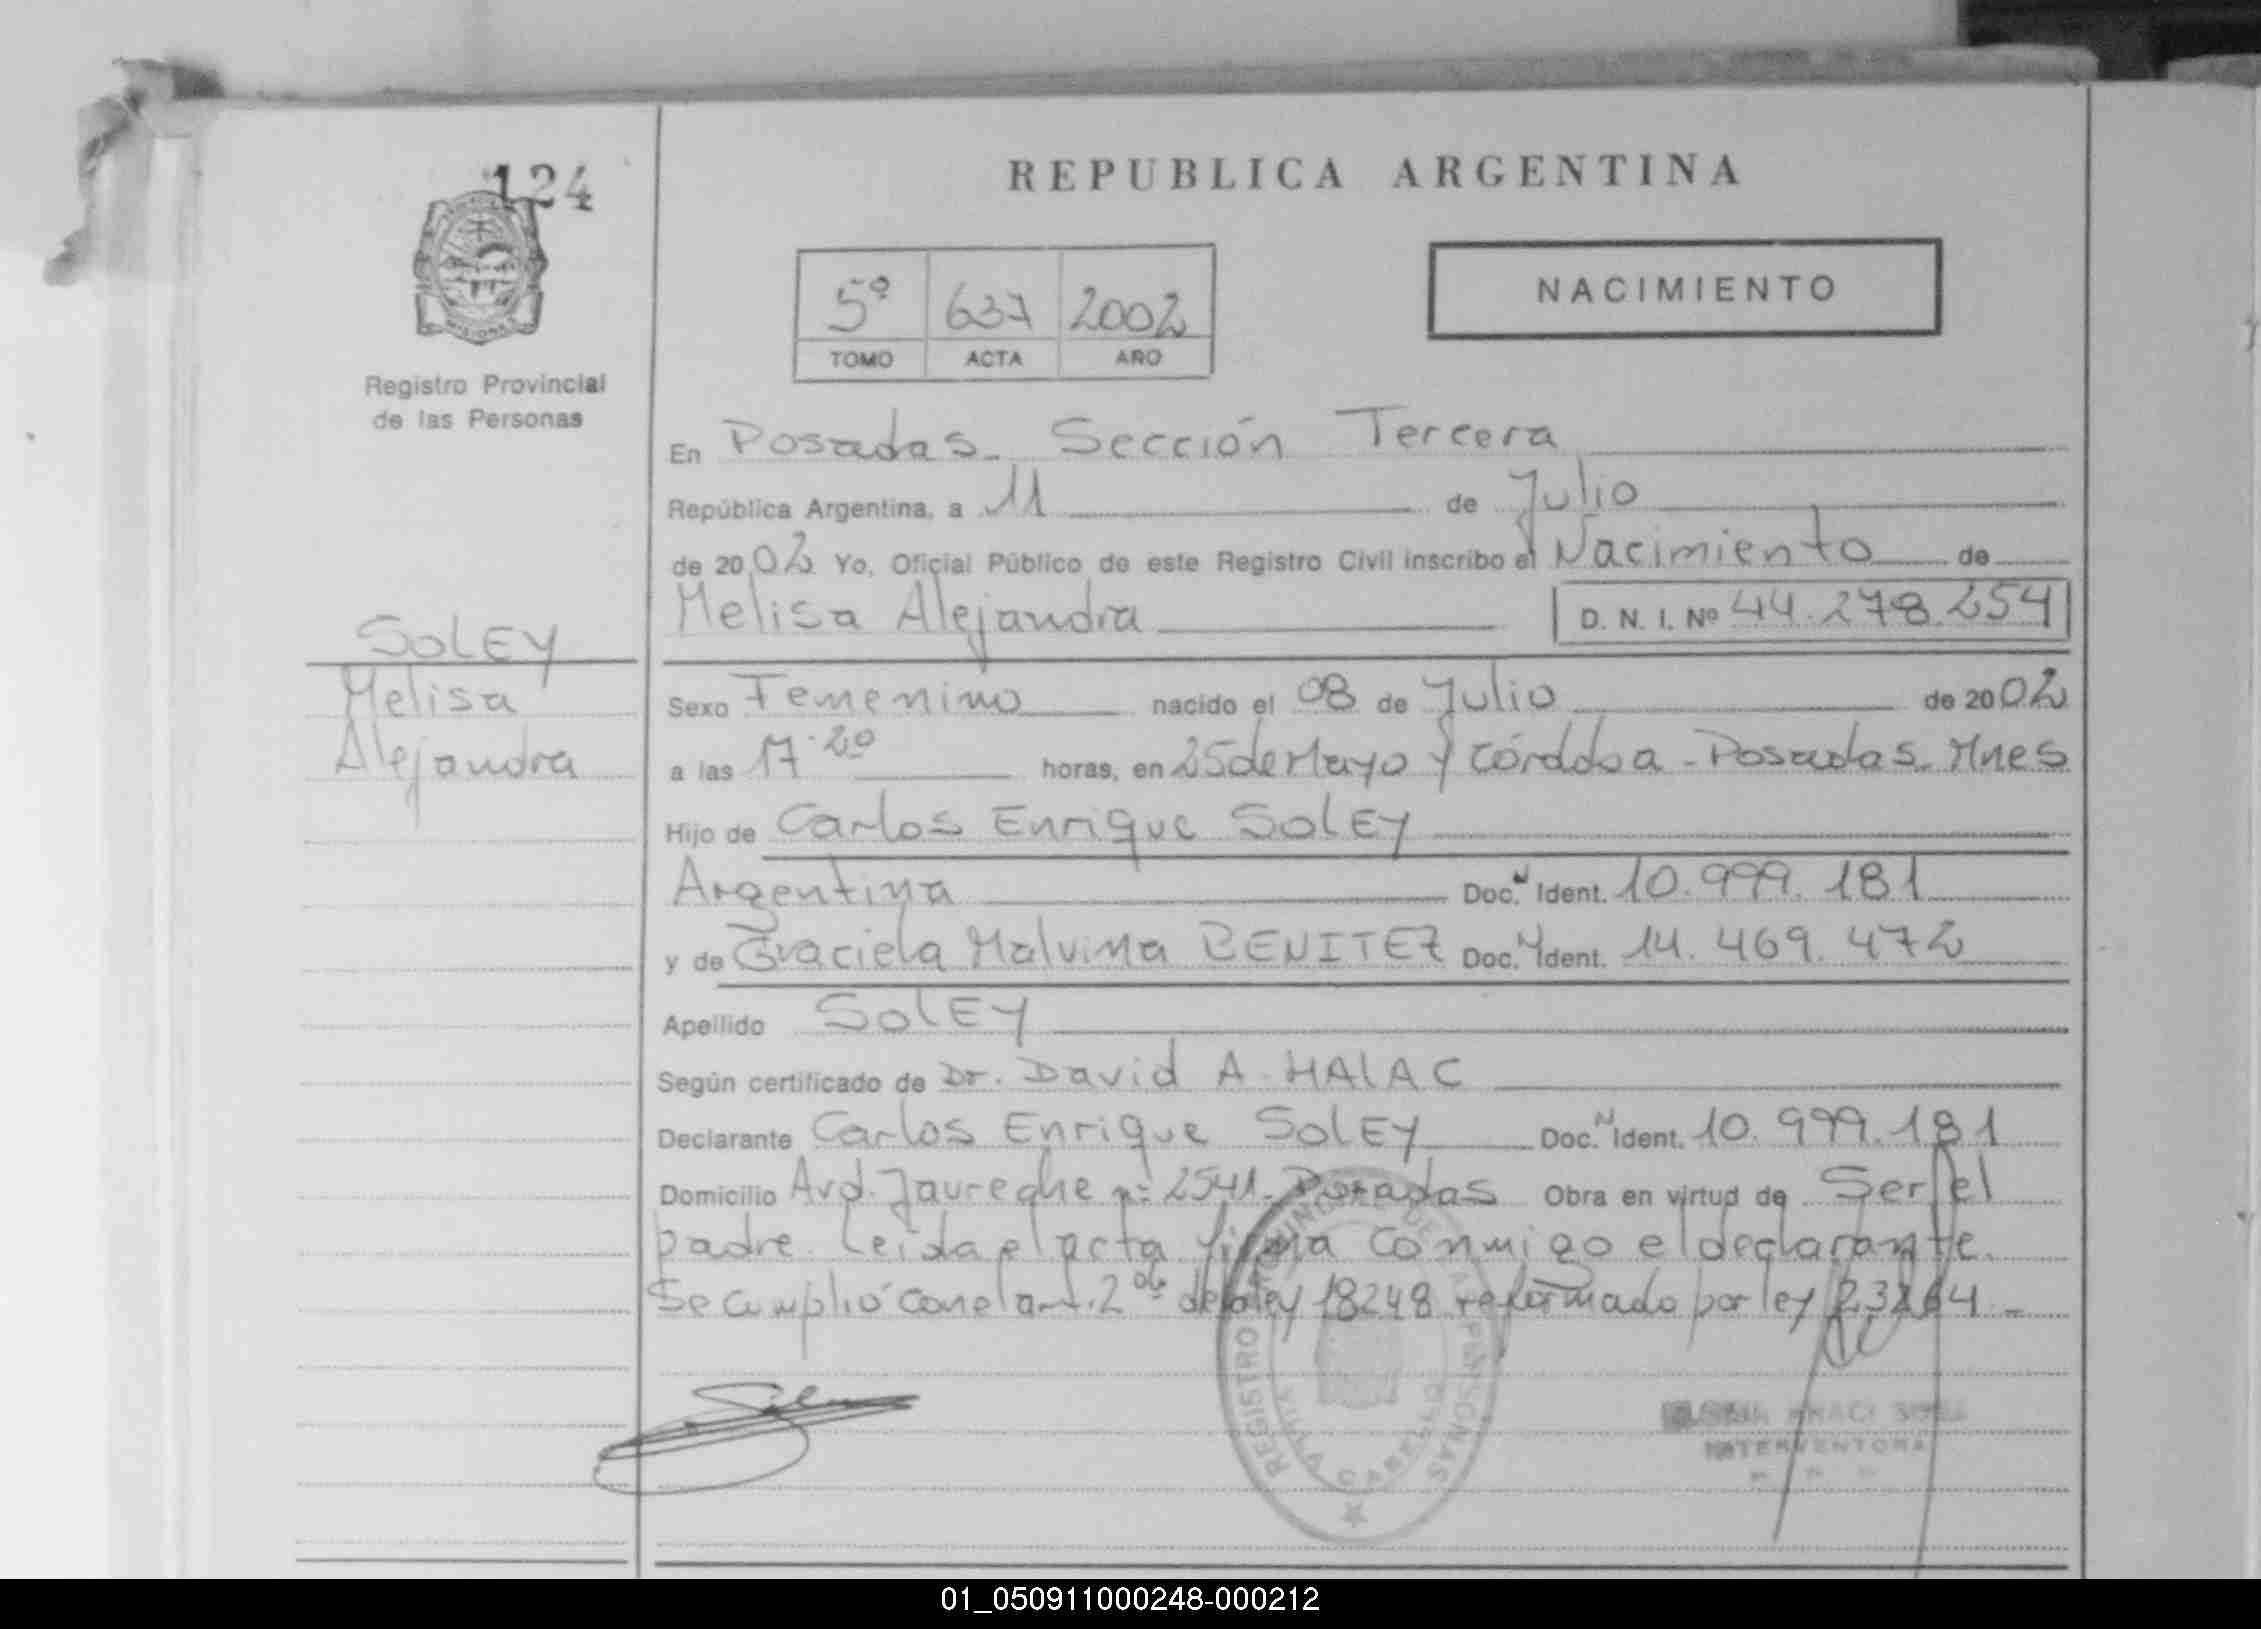 124
REPUBLICA ARGENTINA
5º 637 2002
TOMO ACTA AÑO
NACIMIENTO
Registro Provincial
de las Personas
En Posadas - Sección Tercera
República Argentina, a 11 de Julio
de 2002 Yo, Oficial Público de este Registro Civil inscribo el Nacimiento de
Melisa Alejandra D. N. I. Nº 44.278.254
SOLEY
Melisa
Alejandra
Sexo Femenino nacido el 08 de Julio de 2002
a las 17.20 horas, en 25 de Mayo y Córdoba - Posadas - Mnes
Hijo de Carlos Enrique SOLEY
Argentina Doc. N Ident. 10.999.181
y de Graciela Malvina BENITEZ Doc. N Ident. 14.469.472
Apellido SOLEY
Según certificado de Dr. David A. HALAC
Declarante Carlos Enrique SOLEY Doc. N Ident. 10.999.181
Domicilio Avd. Jaureche nº 2541 - Posadas Obra en virtud de Ser el
padre. Leída el acta firma conmigo el declarante.
Se cumplió con el art. 2 de la ley 18248 reformado por ley 23264 -
REGISTRO PROVINCIAL DE LAS PERSONAS
VILLA CABELLO
INTERVENTORA
01_050911000248-000212